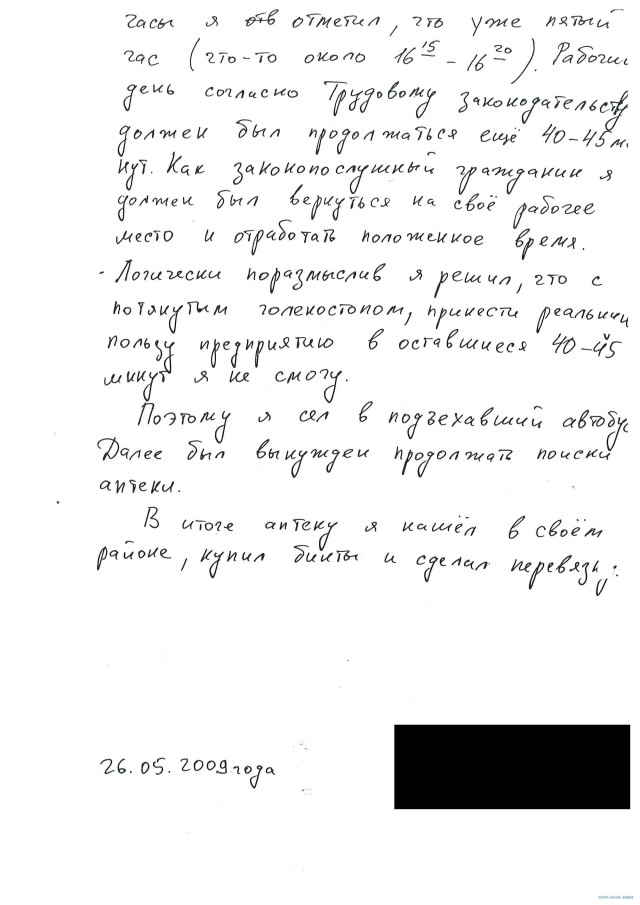 часы я отв отметил, что уже пятый
час (что-то около 16 15 – 16 20). Рабочи
день согласно Трудовому законодательству
должен был продолжаться ещё 40–45 м
нут. Как законопослушный гражданин я
должен был вернуться на своё рабочее
место и отработать положенное время.
- Логически поразмыслив я решил, что с
потянутым голеностопом, принести реальн
пользу предприятию в оставшиеся 40–45
минут я не смогу.
Поэтому я сел в подъехавший автобус
Далее был вынужден продолжать поиски
аптеки.
В итоге аптеку я нашёл в своём
районе, купил бинты и сделал перевязку.
26.05.2009 года